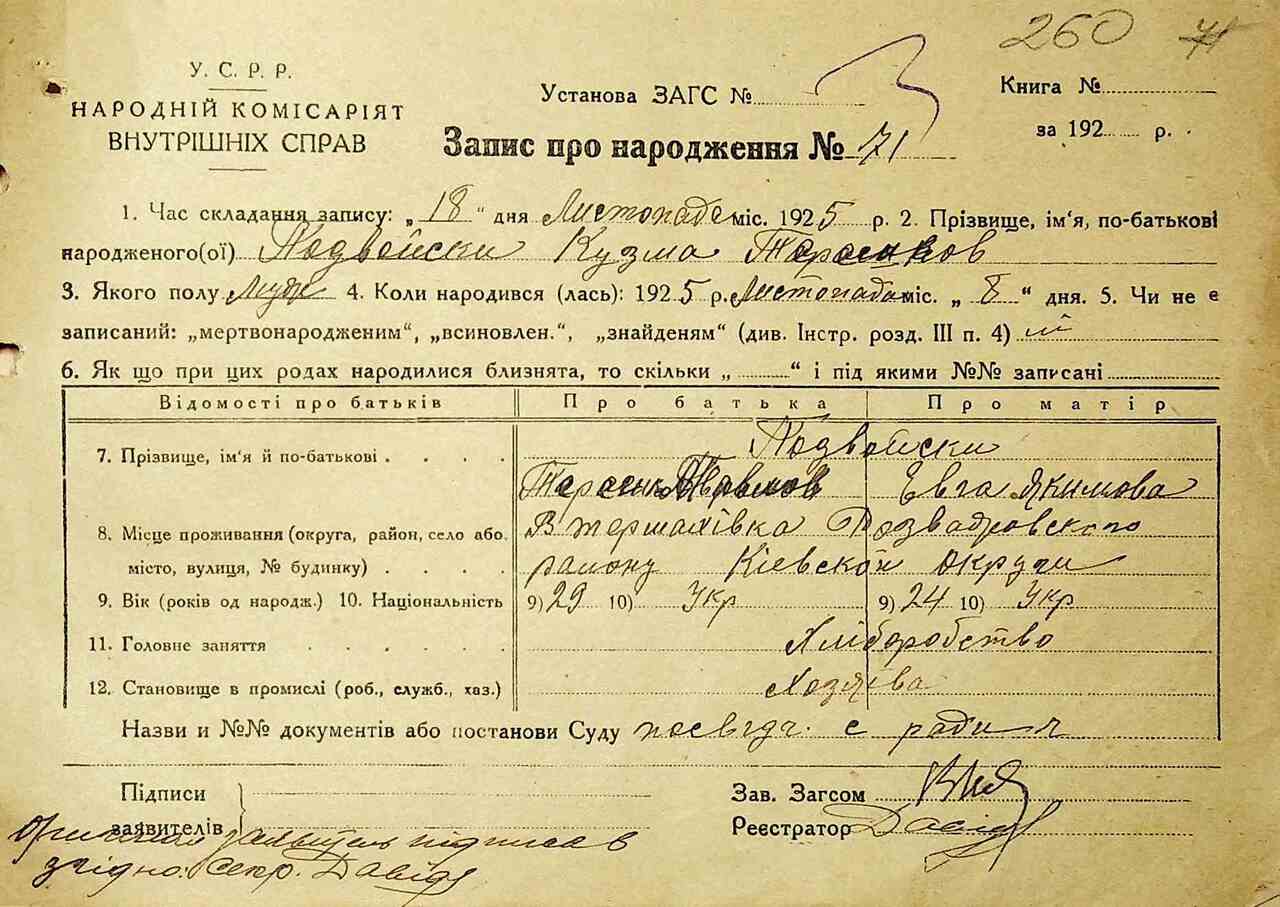 260 71
У. С. Р. Р.
НАРОДНІЙ КОМІСАРІЯТ
ВНУТРІШНІХ СПРАВ
Установа ЗАГС № 3
Книга №
за 192 р.
Запис про народження № 71
1. Час складання запису: „ 18 “ дня Листопада міс. 1925 р. 2. Прізвище, ім'я, по-батькові
народженого(ої) Подвойски Кузма Тарасиков
3. Якого полу Муж 4. Коли народився (лась): 1925 р. Листопада міс. „ 8 “ дня. 5. Чи не є
записаний: „мертвонародженим“, „всиновлен.“, „знайденям“ (див. Інстр. розд. III п. 4) ні
6. Як що при цих родах народилися близнята, то скільки „ “ і під якими №№ записані
Відомості про батьків Про батька Про матір
7. Прізвище, ім'я й по-батькові . . . . Подвойски
Евга Якимова
8. Місце проживання (округа, район, село або
місто, вулиця, № будинку) . . . .
району Кіевской округи
9. Вік (років од народж.) 10. Національність 9) 29 10) Укр 9) 24 10) Укр
11. Головне заняття . . . . . Хліборобство
12. Становище в промислі (роб., служб., хаз.) Хозяїва
Назви и №№ документів або постанови Суду посвідч. с ради
Підписи
заявителів
Зав. Загсом
Реєстратор Давід
підписав
згідно: Секр. Давід